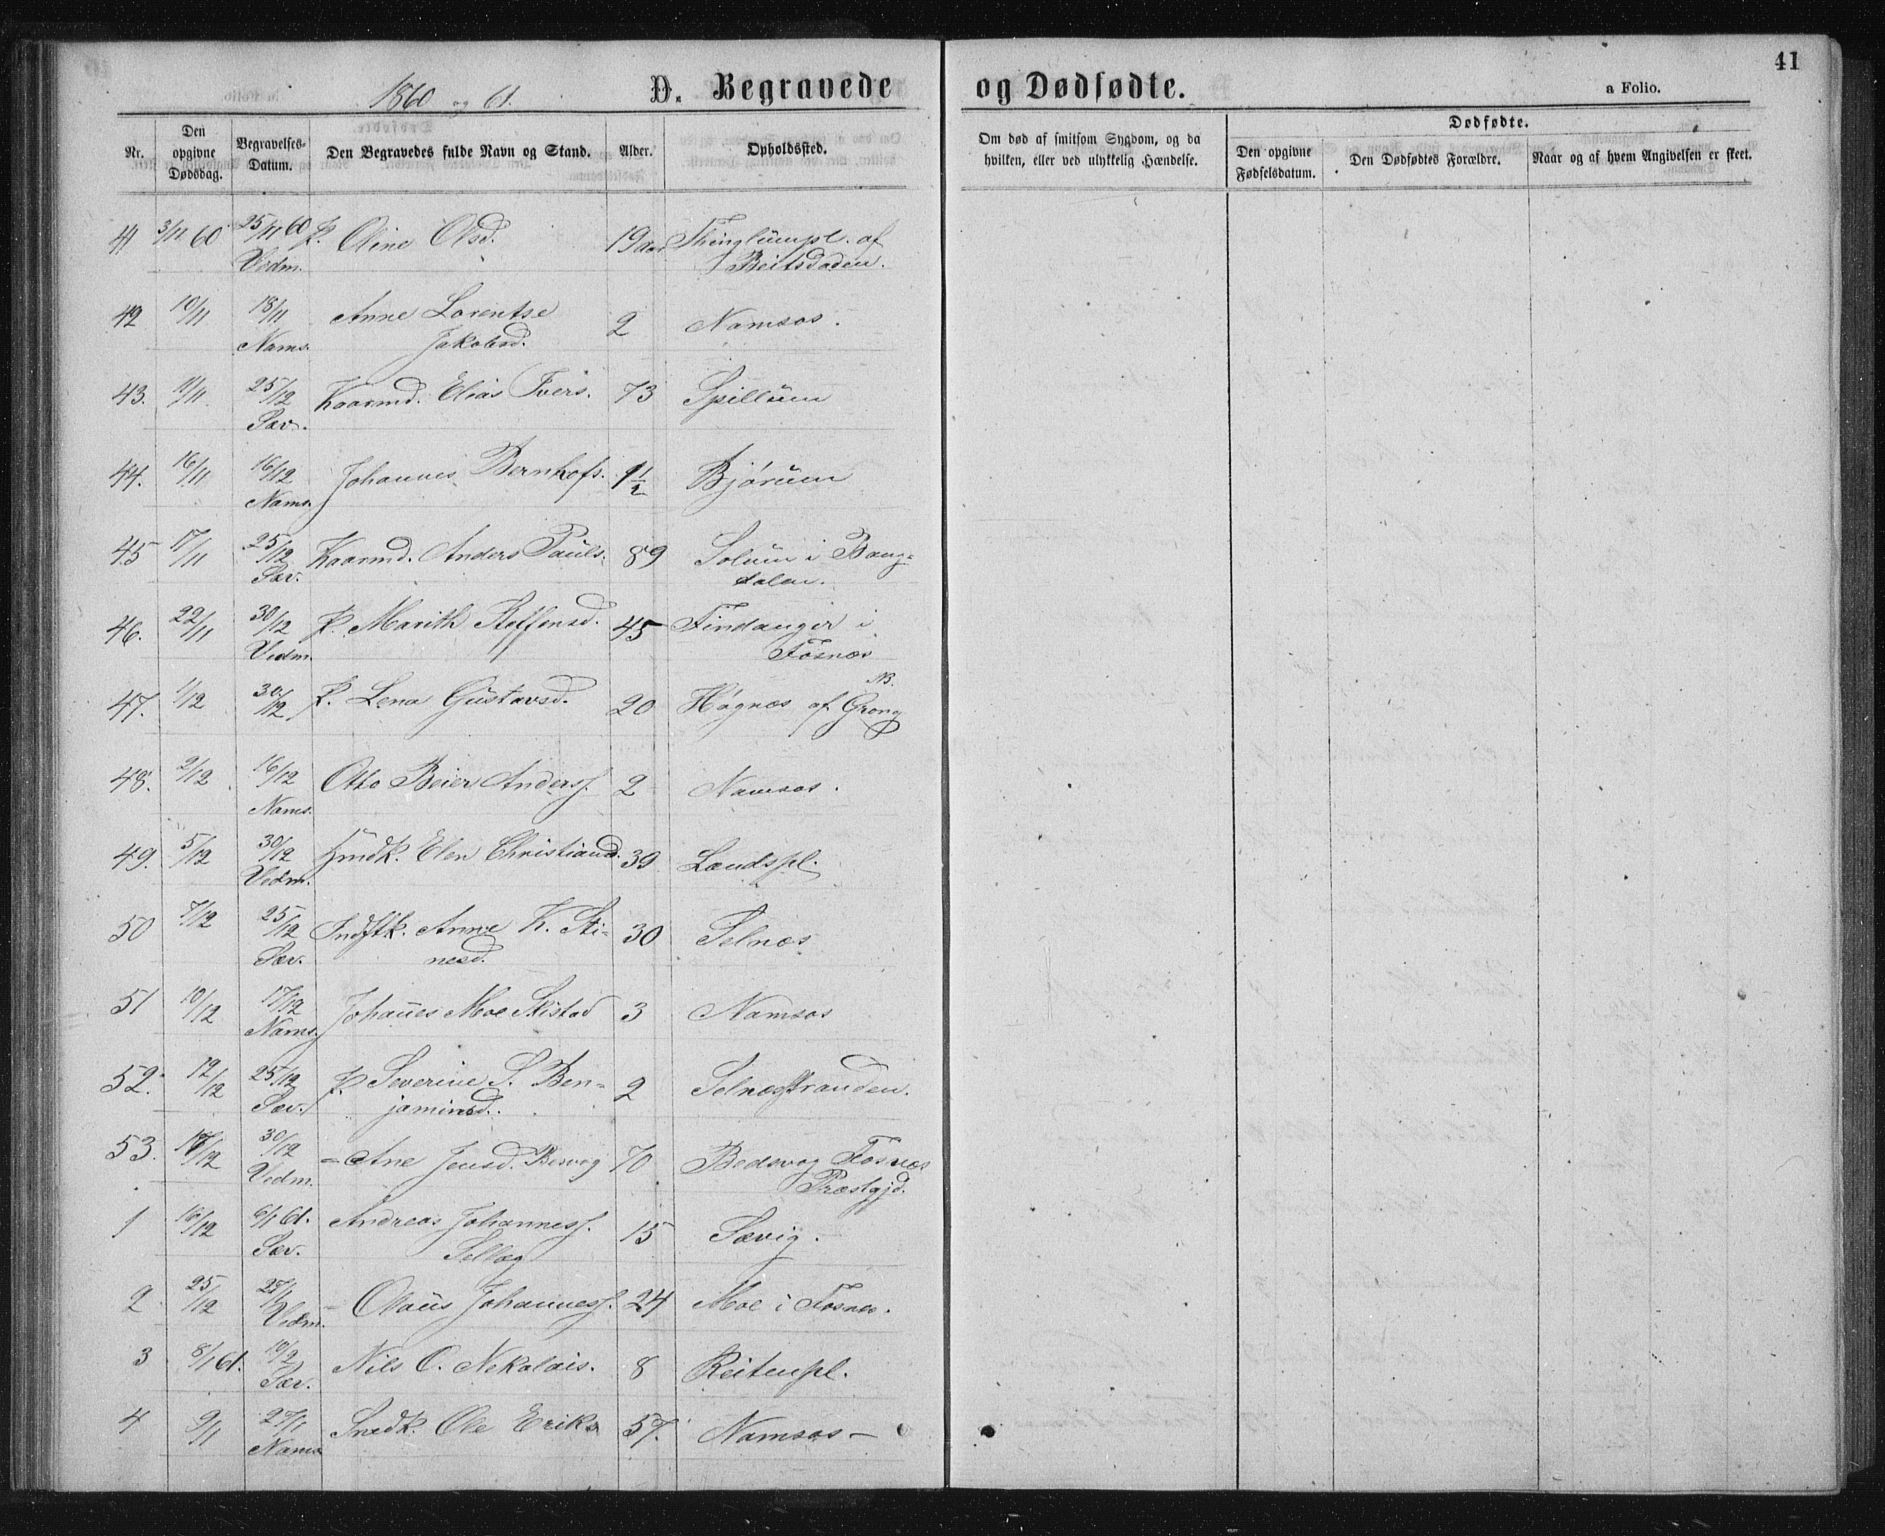 41
1860 og 61.
D. Begravede og Dødfødte.
a Folio.
Nr.
Den opgivne Dødsdag.
Begravelses-Datum.
Den Begravedes fulde Navn og Stand.
Alder.
Opholdssted.
Om død af smitsom Sygdom, og da hvilken, eller ved ulykkelig Hændelse.
Dødfødte.
Den opgivne Fødselsdatum.
Den Dødfødtes Forældre.
Naar og af hvem Angivelsen er skeet.
41 3/11 60 25/11 60 P. Oline Olsd. 19 aar
Vedm.
42 10/11 18/11 Anne Lorentse 2 Namsos.
Nams. Jakobsd.
43. 11/11 25/12 Kaarmd. Elias Ivers. 73 Spillum
Sæv.
44. 16/11 16/12 Johannes Bernhofs. 1½ Bjørum
Nams.
45 17/11 25/12 Kaarmd. Anders Pauls. 89 Solum i Bang-
Sæv. dalen.
46. 22/11 30/12 P. Marith Steffensd. 45 Findanger i
Vedm. Fosnæs
NB.
47. 1/12 30/12 P. Lena Gustavsd. 20 Høgnæs af Grong
48. 2/12 16/12 Otto Beier Anders. 2 Namsos.
Nams.
49. 5/12 30/12 Elen Christiansd. 39
Vedm.
50 7/12 25/12 Anne K. Sti- 30 Selnæs
Sæv. nesd.
51 10/12 17/12 Johañes Moe Skistad 3 Namsos
Nams.
52. 12/12 25/12 P. Severine S. Ben- 2 Selnæsstranden.
Sæv. jaminsd.
53. 30/12 = Ane Jensd. 70 Fosnæs
Vedm. Præstgjd.
1 16/12 6/1 61. Andreas Johanness. 15 Sævig.
Sæv.
2 25/12 27/1 - Olaus Johanness. 24 Moe i Fosnæs.
Vedm.
3 8/1 61. 10/2 Nils O. Nekolais. 8 Reitenpl.
Sæv.
4 9/1 27/1 Snedk. Ole Eriks 57. Namsos —
Nams